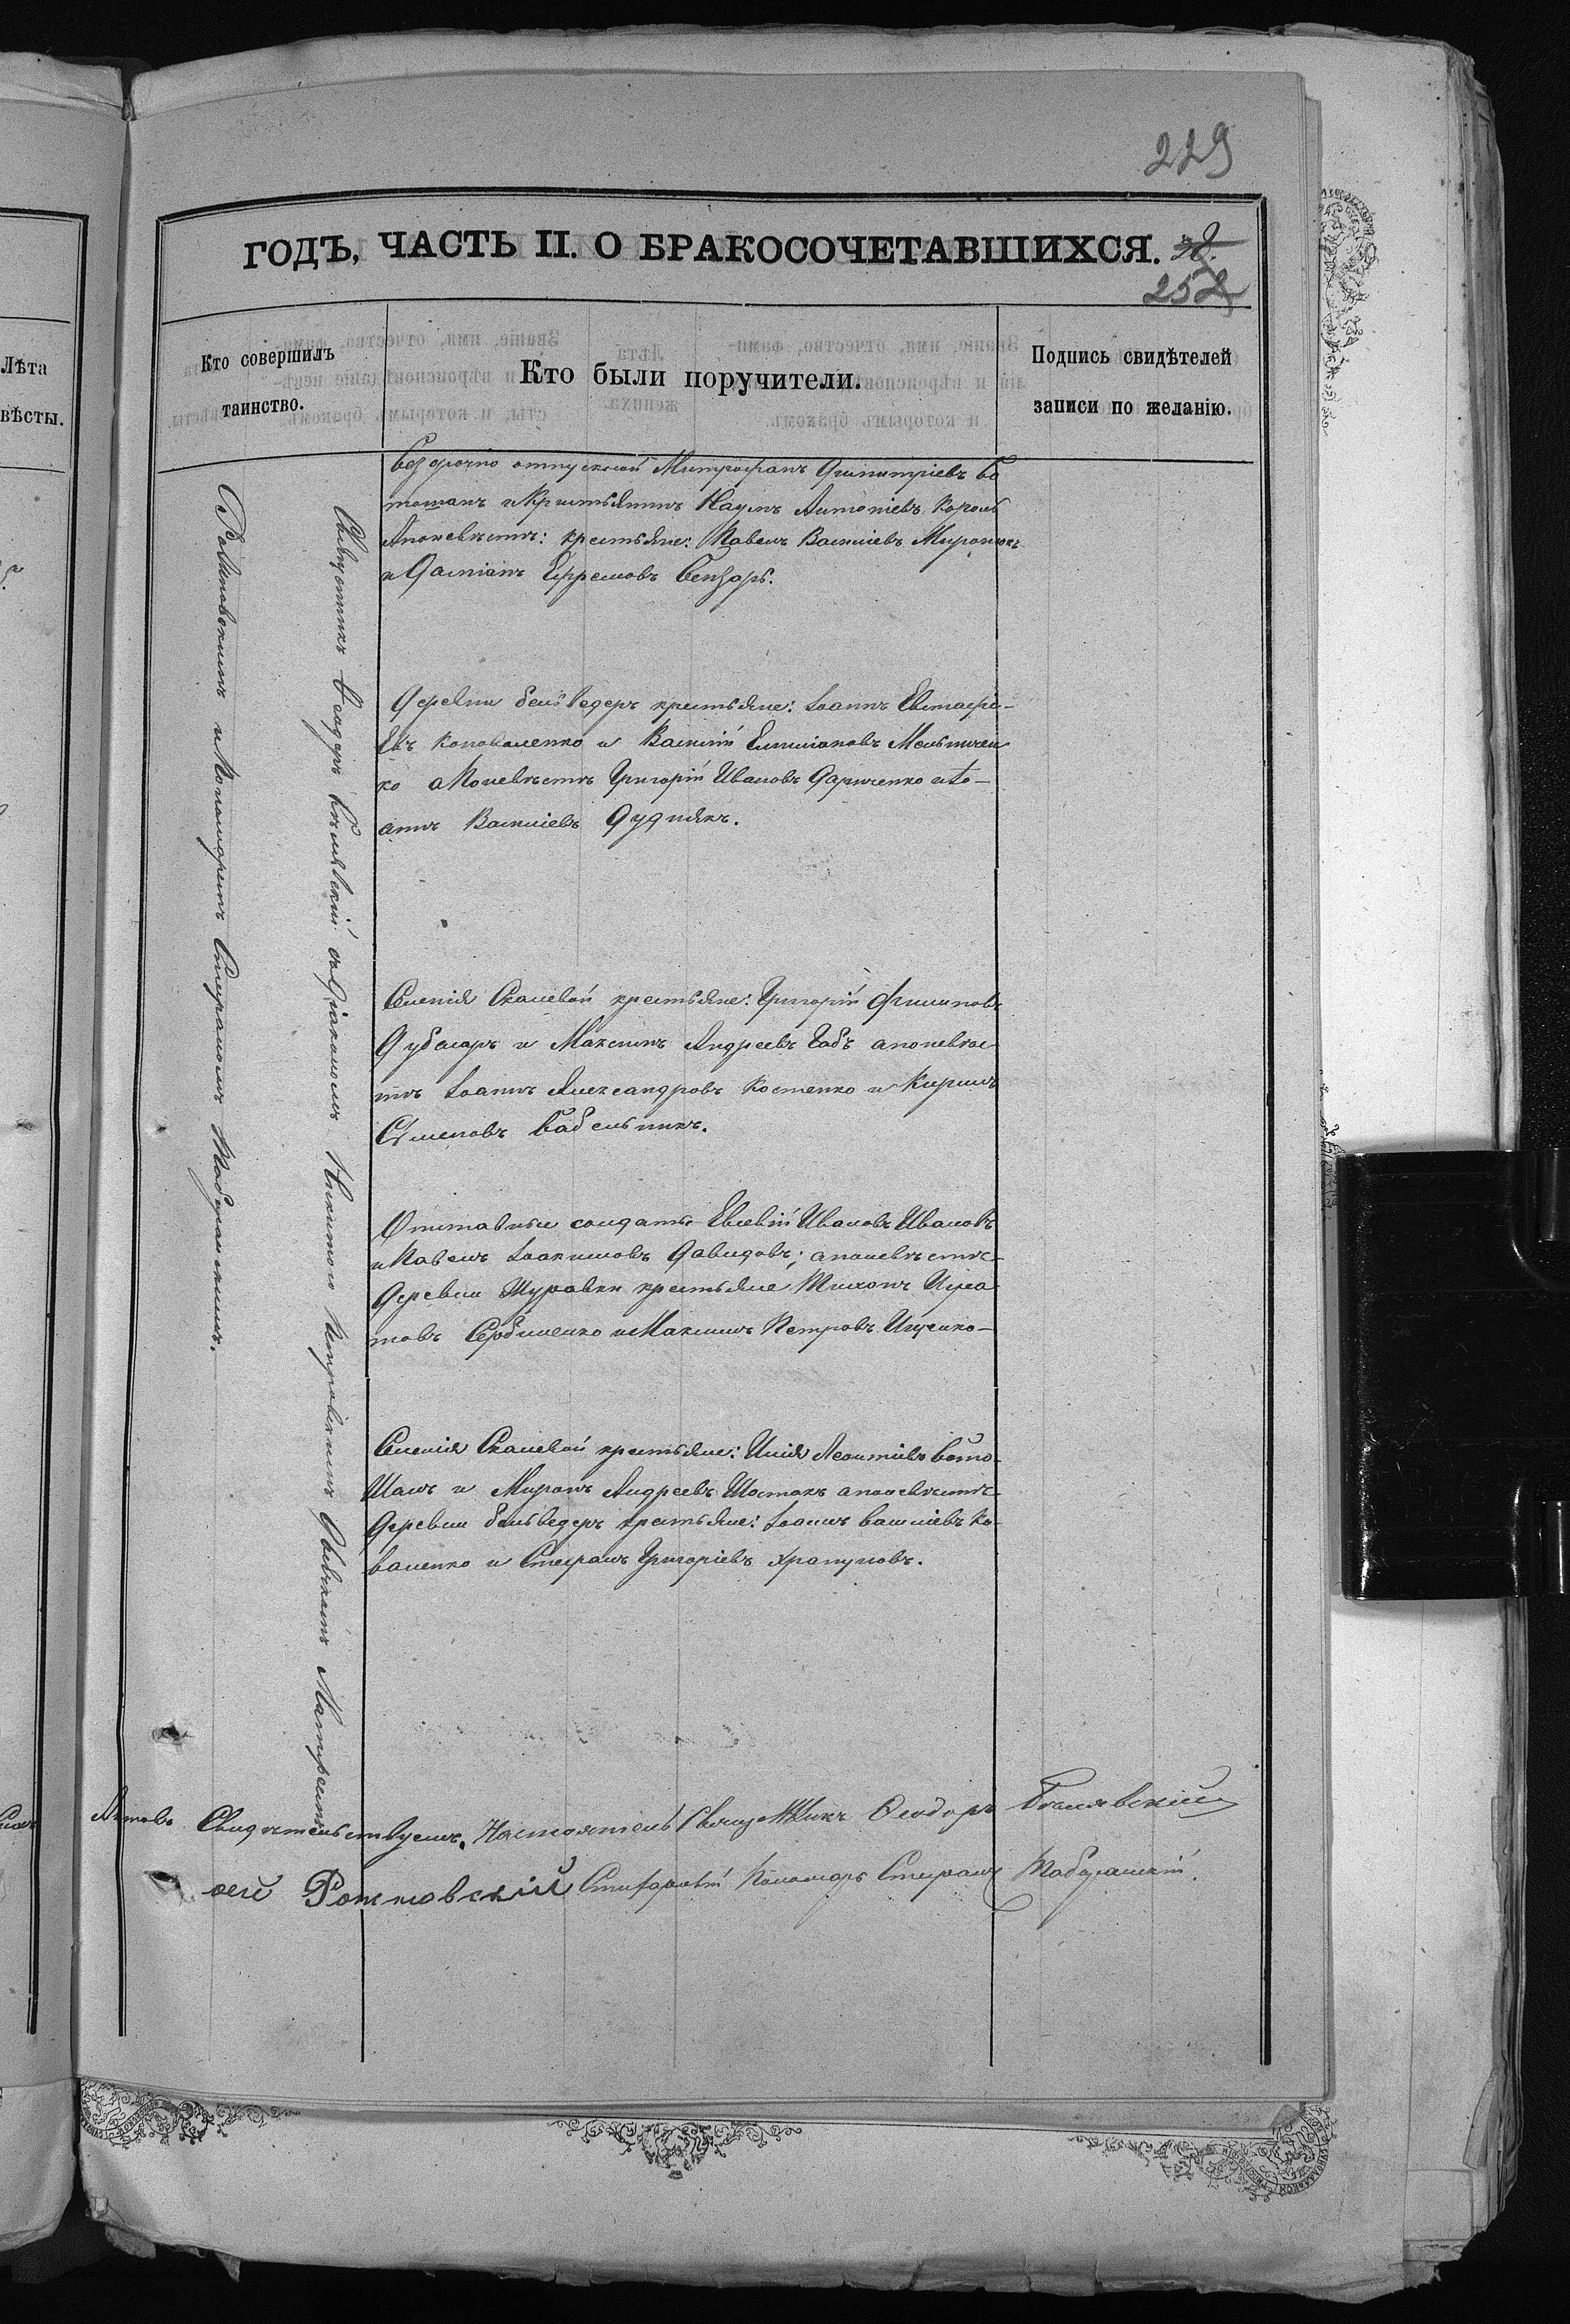 229
ГОДЪ, ЧАСТЬ II. О БРАКОСОЧЕТАВШИХСЯ.
252
Лѣта
вѣсты.
Кто совершилъ
таинство.
Кто были поручители.
Подпись свидѣтелей
записи по желанію.
Священникъ Ѳеодоръ Бѣлявскій съ Діакономъ Никитою Покровскимъ
Рошковскимъ и Пономаремъ Стефаномъ Табуранскимъ.
Безсрочно отпускной Митрофанъ Димитріевъ Бо
тошанъ и Крестьянинъ Наумъ Антоніевъ Король
Апоневѣстѣ: крестьяне: Павелъ Василіевъ Миронюкъ
и Даміанъ Ефремовъ Бензарь.
Деревни Бельведеръ крестьяне: Іоаннъ Евстафі-
евъ Коноваленко и Василій Емиліановъ Мельничен
ко апоневѣстѣ Григорій Ивановъ Дариченко и Іо-
аннъ Василіевъ Дудникъ.
Селенія Скалевой крестьяне: Григорій Филиповъ
Дубасаръ и Максимъ Андреевъ Бабъ апоневѣс
тѣ Іоаннъ Александровъ Костенко и Кирилъ
Симеоновъ Бабельникъ.
Отставные солдаты Евсевій Ивановъ Ивановъ
и Павелъ Іоакимовъ Давидовъ; апоневѣстѣ
Деревни Шуравки крестьяне Тихонъ Игна
товъ Сербиненко и Максимъ Петровъ Ищенко-
Селенія Скалевой крестьяне: Илія Леонтіевъ Бото
шанъ и Миронъ Андреевъ Шостакъ апоневѣстѣ
Деревни Бельведеръ крестьяне: Іоаннъ Василіевъ Ко
валенко и Стефанъ Григоріевъ Храпуновъ.
Свидѣтельствуемъ. Настоятель Священникъ Ѳеодоръ Бѣлявскій
Рошковскій Пономарь Стефанъ Табуранскій.